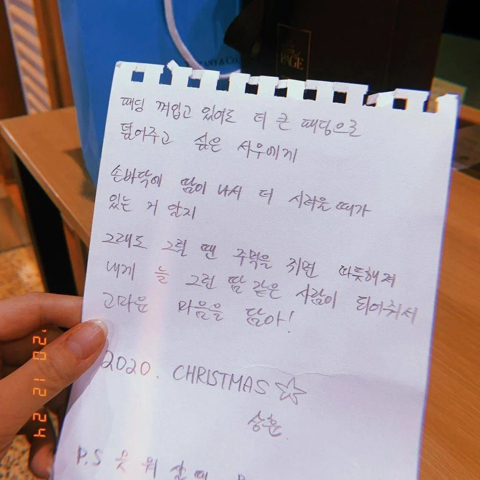 NY & CO.
패딩 껴입고 있어도 더 큰 패딩으로
덮어주고 싶은 사우에게
손바닥에 땀이 나서 더 시려울 때가
있는 거 알지
그래도 그럴 땐 주먹을 쥐면 따뜻해져
내게 늘 그런 땀 같은 사람이 되어줘서
고마운 마음을 담아!
2020. CHRISTMAS ☆
승훈.
P.S
'20 12 24